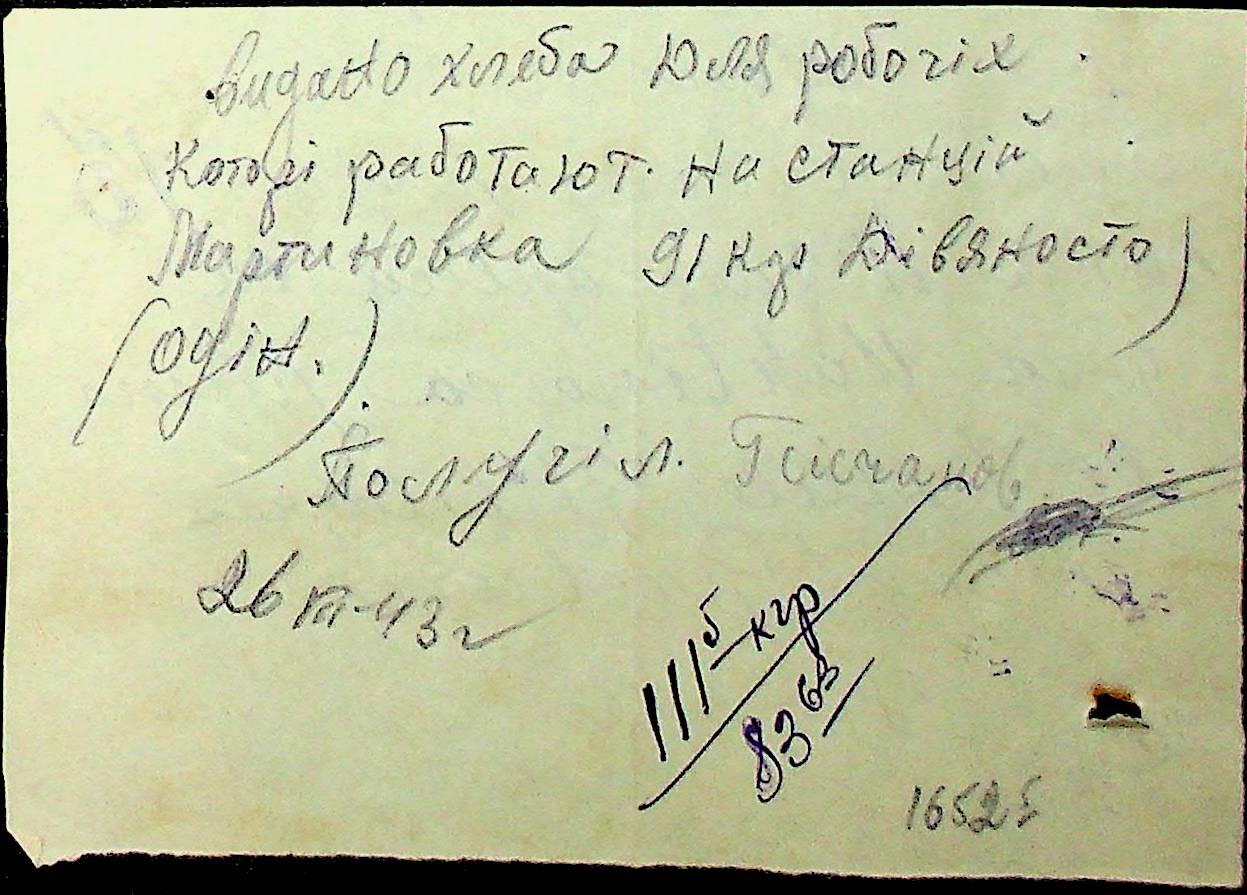 видано хлеба для робочіх.
которі работают. на станций
Мартиновка 91 кгр дівяносто)
(одін.).
Получіл.
26 III-43 г
111⁵ кгр
83⁶³
16525